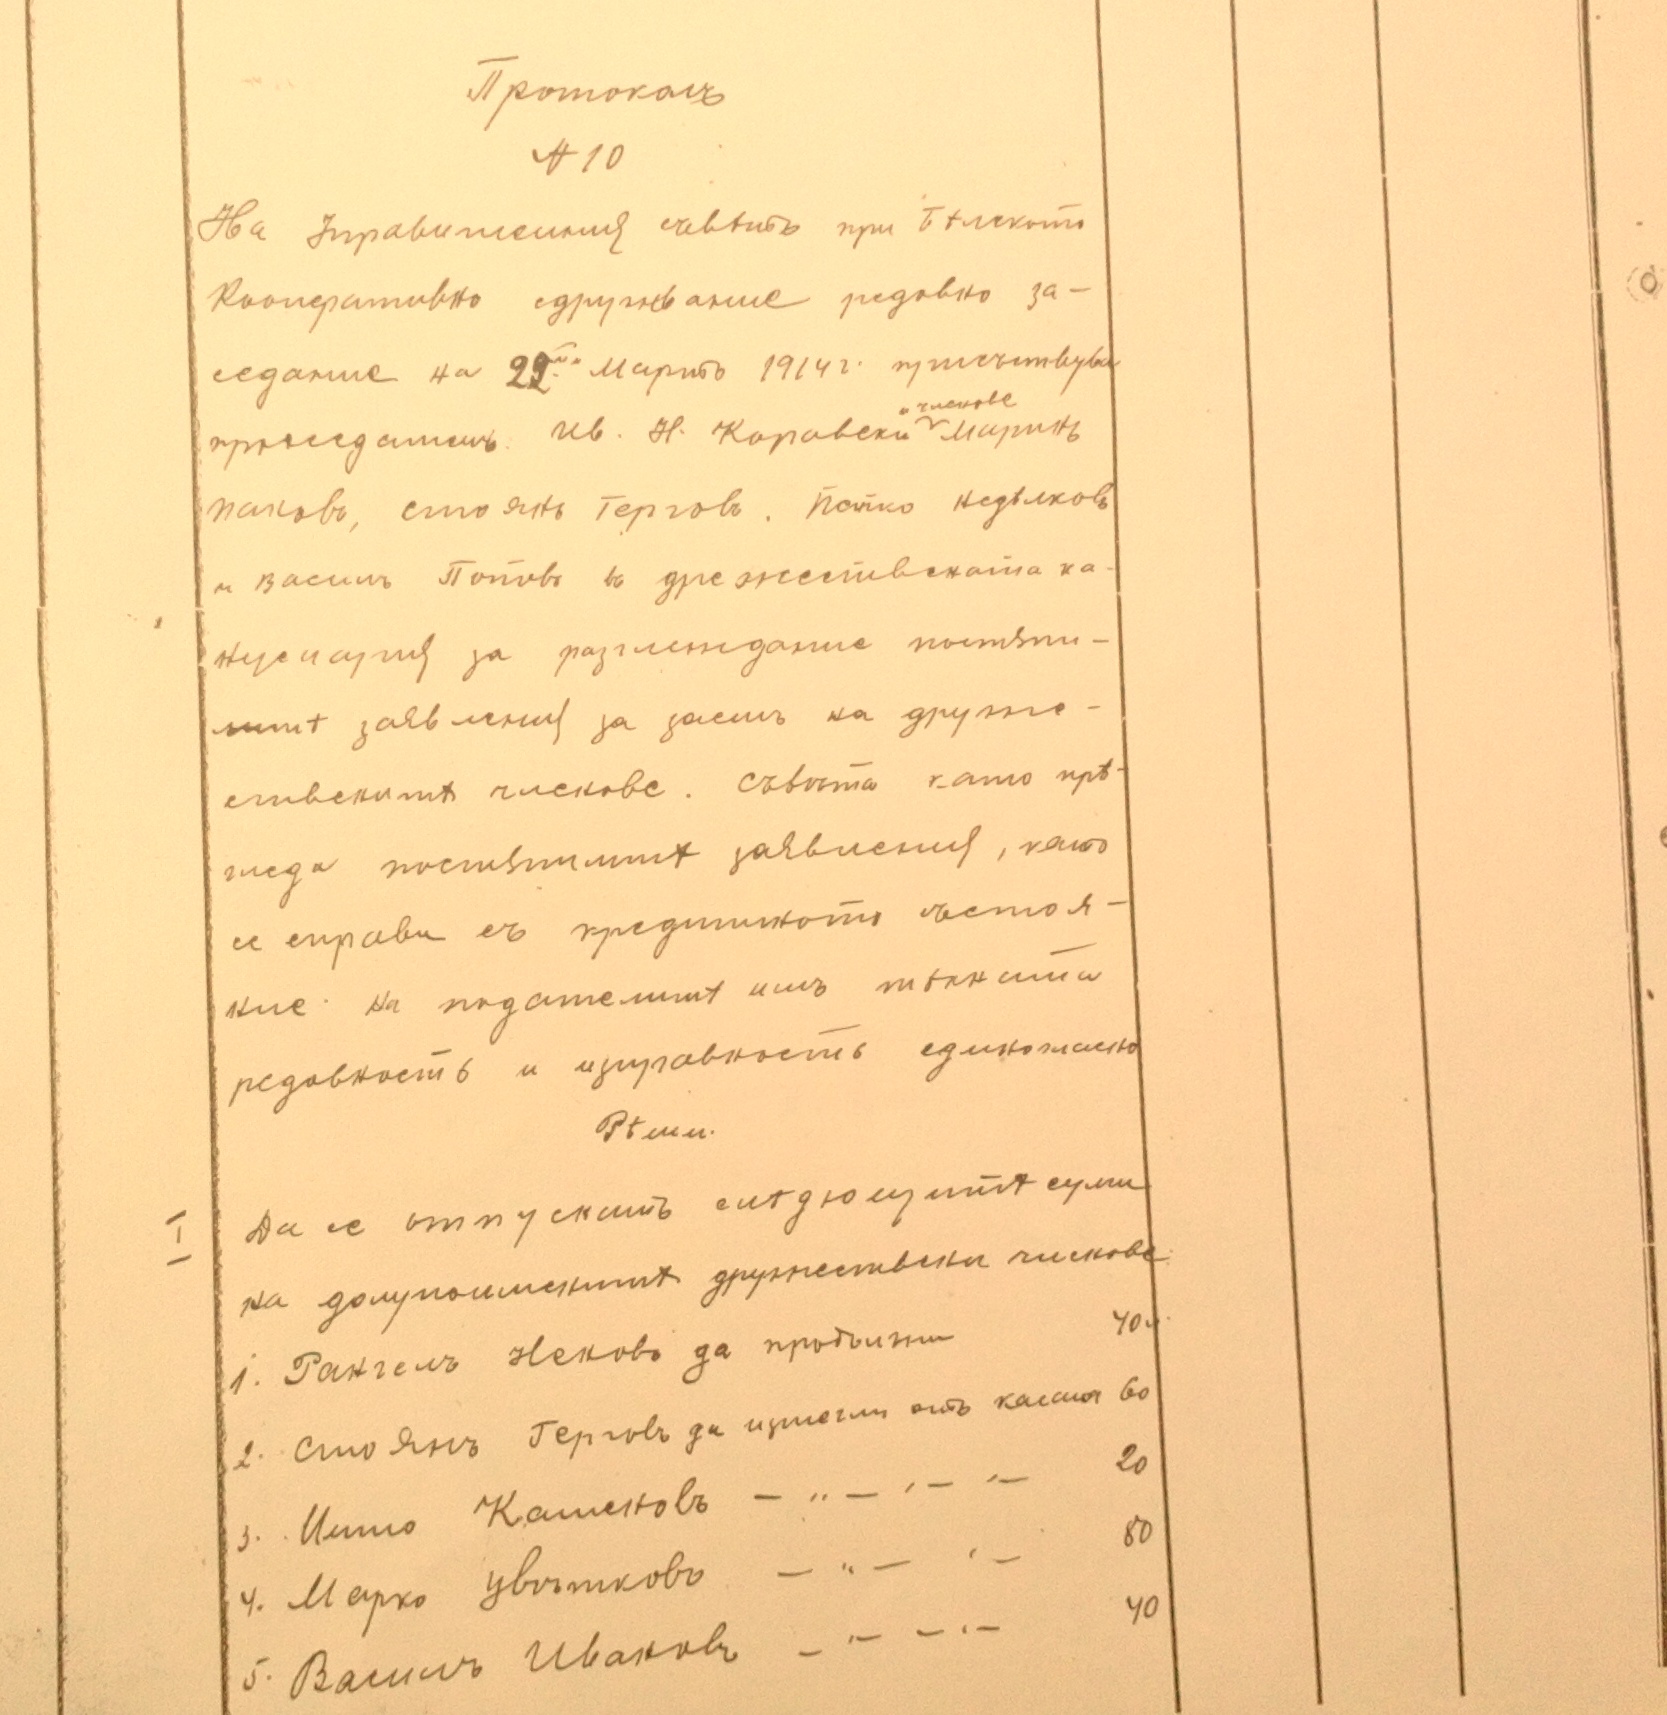 Протоколъ
№ 10
На Управителния съвѣтъ при Бѣлското
Кооперативно сдружвание редовно за-
седание на 22ий Мартъ 1914 г. присътвува
прѣседателъ Ив. Н. Коравски и членове Маринъ
Паковъ, Стоянъ Герговъ. Петко Недѣлковъ
и Василъ Потовъ въ дрежествената ка-
нцелария за разглеждание постѫпи-
литѣ заявления за заемъ на друже-
ственитѣ членове. Съвѣта като прѣ-
гледа постѫпилитѣ заявления, като
се справи съ кредитното състоя-
ние на подателитѣ имъ тѣхната
редовность и исправность единогласно
Рѣши.
I Да се отпускатъ слѣдющитѣ суми
на долупоименитѣ дружествени членове
1. Рангелъ Неновъ да продължи 40 л.
2. Стоянъ Герговъ да изтегли отъ касата 60
3. Цито Каменовъ — „ — „ — „ — 20
4. Марко Цвѣтковъ — „ — „ — 80
5. Василъ Ивановъ — „ — „ — 40